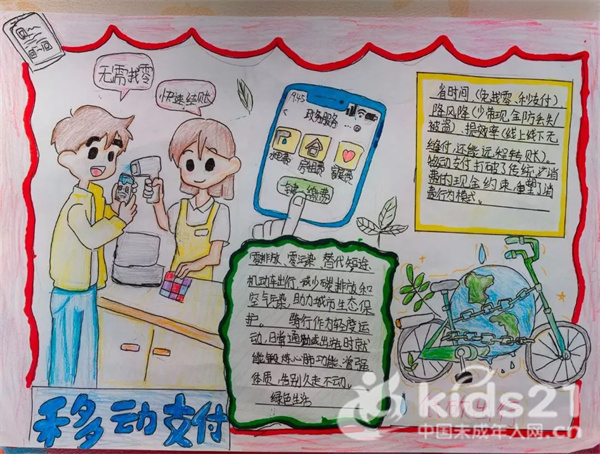 无需找零
快速结账
9:45
政务服务
水电费
房租费
一键缴费
省时间(免找零、秒支付)
降风险(少带现金防丢失/
被盗)、提效率(线上线下无
缝付,还能远程转账)。
移动支付打破了传统
费的现金约束,重塑消
费行为模式。
零排放、零污染,替代短途
机动车出行,减少碳排放和
空气污染,助力城市生态保
护。 骑行作为轻度运
动,日常通勤或出行时就
能锻炼心肺功能,增强
体质,告别久走不动。
绿色生活
移动支付
kids21
中国未成年人网.cn